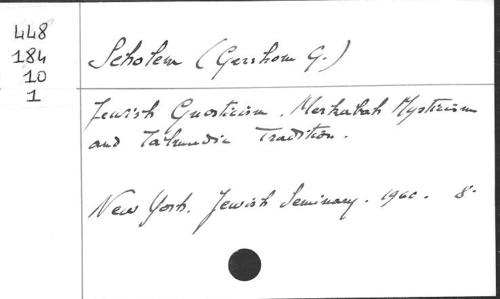 448
184
10
1
Scholem (Gershom G.)
Jewish Gnosticism. Merkabah Mysticism
and Talmudic Tradition.
New York. Jewish Seminary. 1960. 8°